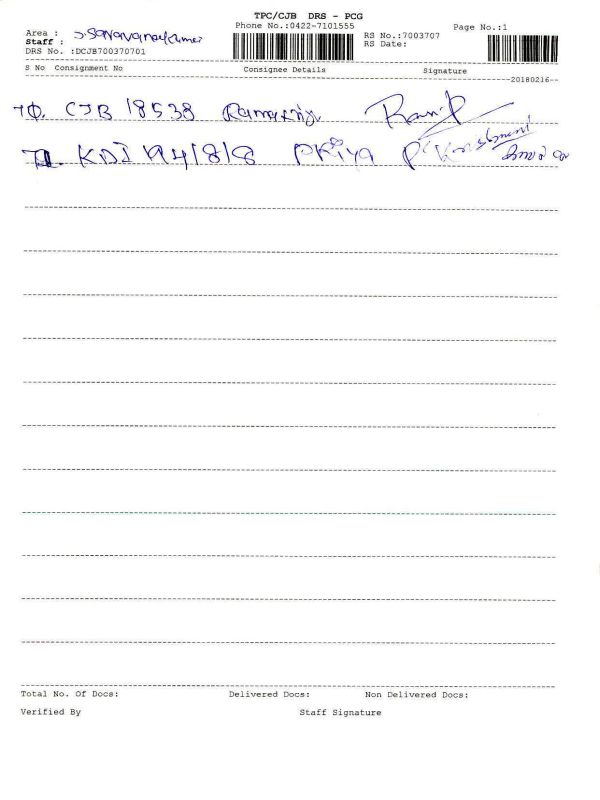 TPC/CJB DRS - PCG
Phone No.:0422-7101555
Page No.:1
Area : J. Saravanakumar
RS No.:7003707
Staff :
RS Date:
DRS No. :DCJB700370701
S No Consignment No Consignee Details Signature
20180216
70. CJB 18538
71. KDI 1941818 Priya
Total No. Of Docs: Delivered Docs: Non Delivered Docs:
Verified By Staff Signature